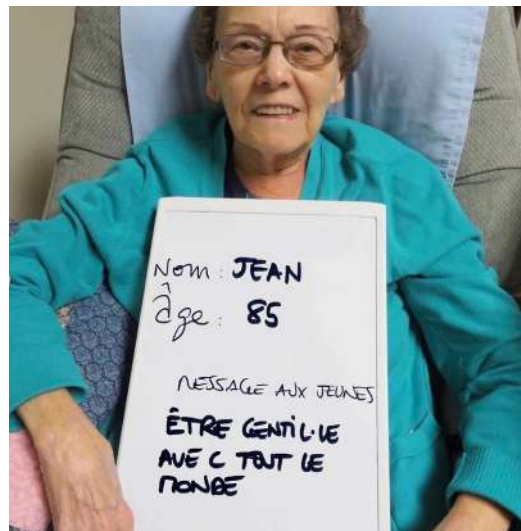 Nom: JEAN
âge: 85
MESSAGE AUX JEUNES
ÊTRE GENTIL·LE
AVEC TOUT LE
MONDE